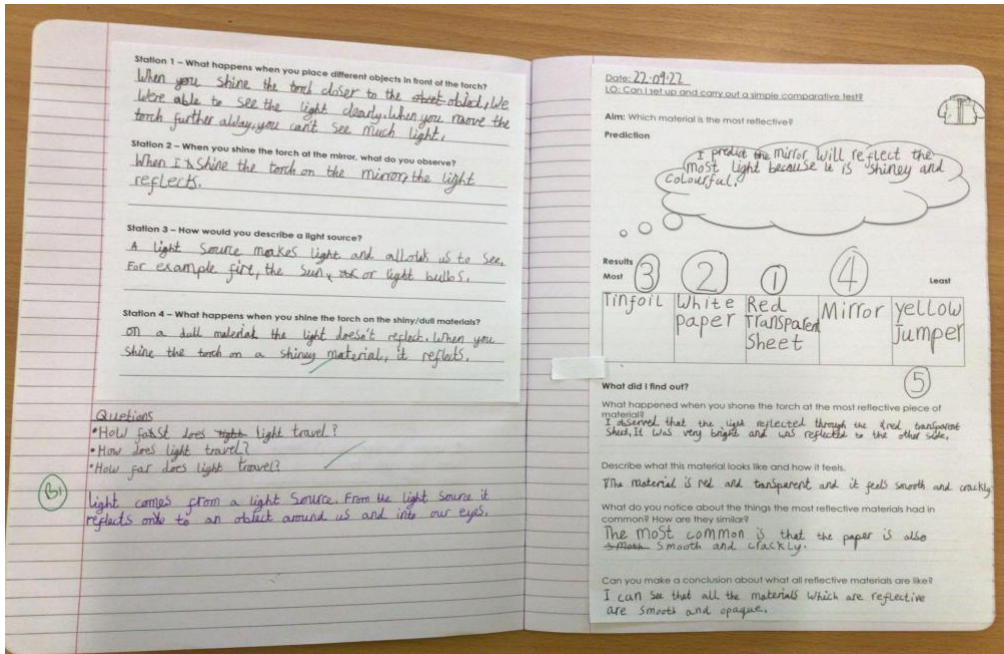 Station 1 – What happens when you place different objects in front of the torch?
When you shine the torch closer to the object, We
were able to see the light clearly. When you move the
torch further away, you can't see much light.
Station 2 – When you shine the torch at the mirror, what do you observe?
When I shine the torch on the mirror, the light
reflects.
Station 3 – How would you describe a light source?
A light source makes light and allows us to see.
For example fire, the sun, or light bulbs.
Station 4 – What happens when you shine the torch on the shiny/dull materials?
On a dull material the light doesn't reflect. When you
shine the torch on a shiney material, it reflects.
Quetions
•How fast does light travel?
•How does light travel?
•How far does light travel?
B1
light comes from a light source. From the light source it
reflects onto to an object around us and into our eyes.
Date: 22.09.22
LO: Can I set up and carry out a simple comparative test?
Aim: Which material is the most reflective?
Prediction
I predict the mirror will reflect the
most light because it is shiney and
colourful.
Results
Most 3 2 1 4 Least
Tinfoil White paper Red Transparent Sheet Mirror yellow Jumper
5
What did I find out?
What happened when you shone the torch at the most reflective piece of
material?
I observed that the light reflected through the red transparent
sheet, It was very bright and was reflected to the other side.
Describe what this material looks like and how it feels.
The material is red and transparent and it feels smooth and crackly.
What do you notice about the things the most reflective materials had in
common? How are they similar?
The most common is that the paper is also
smooth and crackly.
Can you make a conclusion about what all reflective materials are like?
I can see that all the materials which are reflective
are smooth and opaque.